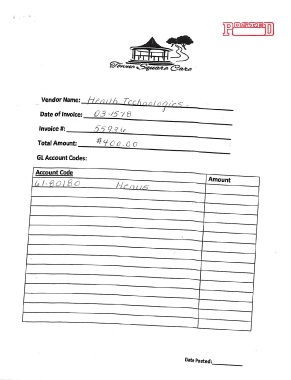 POSTED
Town Square Care
Vendor Name: Health Technologies
Date of Invoice: 03-1578
Invoice #:
Total Amount: $400.00
GL Account Codes:
Account Code Amount
61-80180
Date Posted: